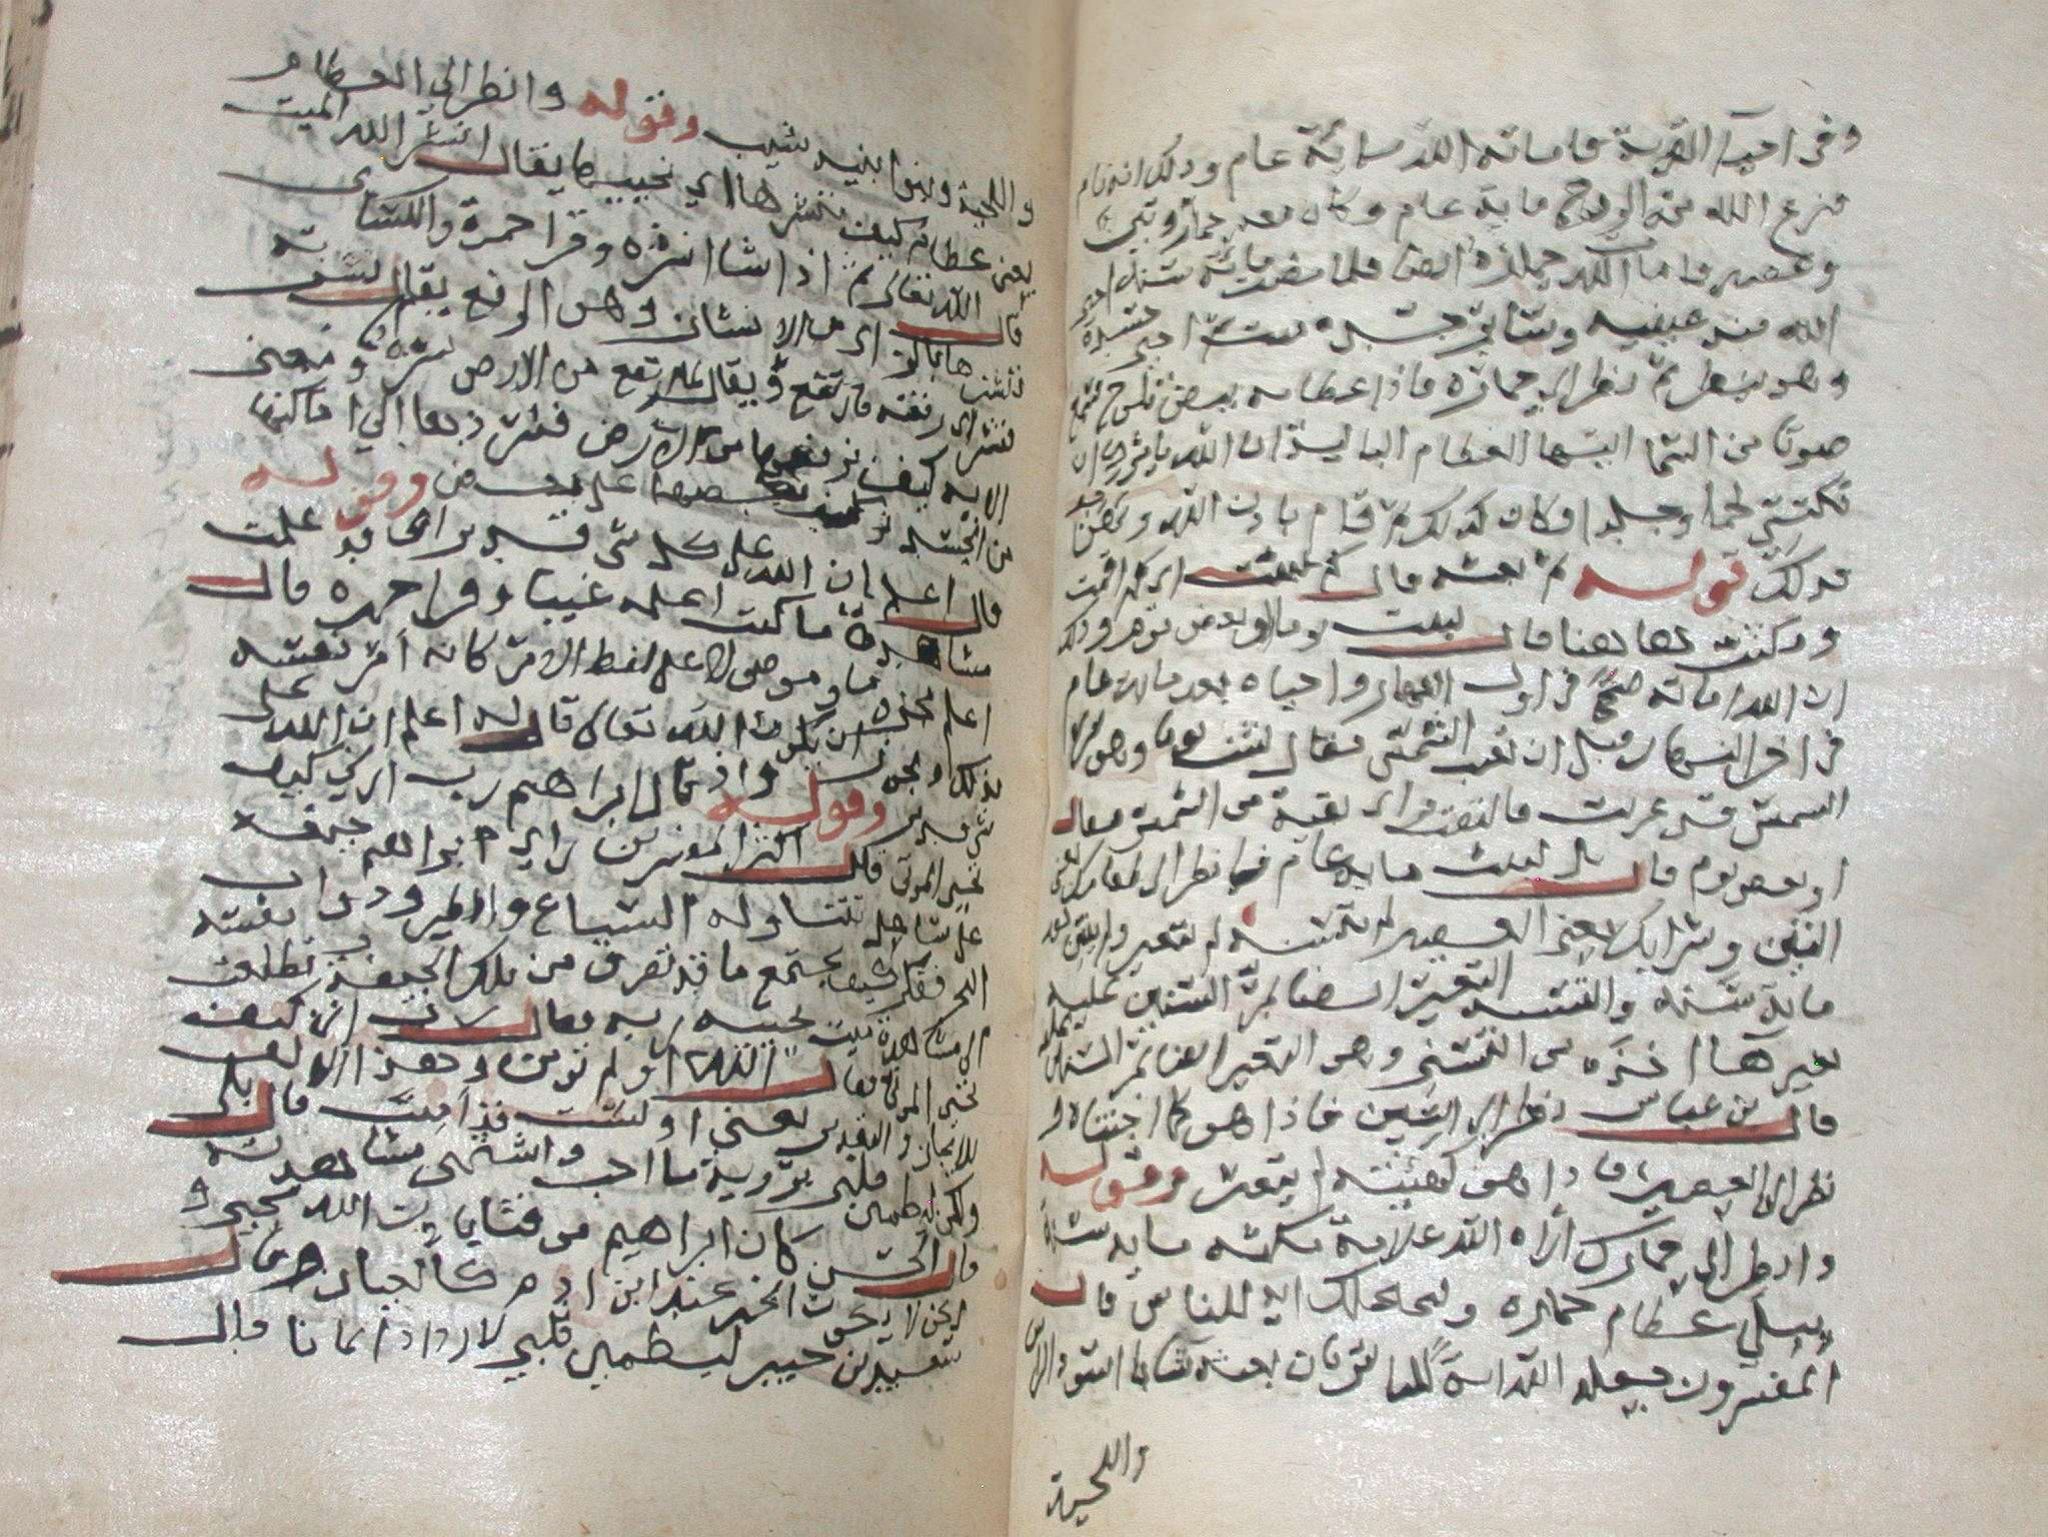 وفي احيا القرية فاماته الله مائة عام وذلك انه نام
فنزع الله منه الروح ماية عام وكان معه حمار وتين
وعصير فامات الله حماره ايضا فلما مضت مائة سنة احيى
الله منه عينيه وسائر جسده ميت احيى جسده
وهو ينظر ثم نظر الى حماره فاذا عظامه بيض تلوح فسمع
صوتا من السما ايتها العظام البالية ان الله يامرك ان
تكتسي لحما وجلدا فكان كذلك ثم قام باذن الله ونهق
فذلك قوله ثم بعثه قال كم لبثت اي كم اقمت
ومكثت هاهنا قال لبثت يوما او بعض يوم وذلك
ان الله اماته ضحى في اول النهار واحياه بعد ماية عام
في اخر النهار قبل ان تغيب الشمس فقال لبثت يوما وهو يرى ان
الشمس قد غربت فالتفت فراى بقية من الشمس فقال
او بعض يوم قال بل لبثت ماية عام فانظر الى طعامك يعني
التين وشرابك يعني العصير لم يتسنه لم يتغير ولم ينتن بعد
ماية سنة والتسنه التغير ايضا لمر السنين عليه
حمزة من التسني وهو التغير ايضا لمر السنين
قال بن عباس نظر الى التين فاذا هو كما اجتناه و
نظر الى العصير فاذا هو كهيئته لم يتغير وقوله
وانظر الى حمارك اراه الله علامة مكثه ماية سنة
ببلى عظام حماره ولنجعلك اية للناس قال
المفسرون جعله الله اية للناس بان بعثه شابا اسود الراس
واللحية
واللحية وبنوا بنيه شيب وقوله وانظر الى العظام
يعني عظام كيف ننشرها اي نحييها يقال انشر الله الميت
قال الله تعالى ثم اذا شا انشره وقرا حمزة والكسائي
ننشزها بالزاي من الانشاز وهو الرفع يقال انشزته
فنشز اي رفعته فارتفع ويقال لما ارتفع من الارض نشز ومعنى
الاية كيف نرفعها من الارض فنردها الى اماكنها
من الجسد بعضها على بعض وقوله
قال اعلم ان الله على كل شي قدير اي قد علمت
مشاهدة ما كنت اعلمه غيبا وقرا حمزه قال
اعلم مجزوما موصولا على لفظ الامر كانه امر نفسه
بذلك ويجوز ان يكون الله تعالى قال له اعلم ان الله على
شي قدير وقوله واذ قال ابراهيم رب ارني كيف
تحيي الموتى قال اكثر المفسرين راى ابراهيم جيفة
على ساحل تتناوله السباع والطير ودواب
البحر ففكر كيف يجتمع ما قد تفرق من تلك الجيفة وتطلعت نفسه
الى مشاهدة ميت يحييه ربه فقال رب ارني كيف
تحيي الموتى فقال الله اولم تؤمن وهذا الالف
للايجاب والتقدير يعني اولست قد امنت قال بلى
ولكن ليطمئن قلبي برؤية ما احب واشتهي مشاهدته
قال الحسن كان ابراهيم موقنا بان الله محيي و
لكن لا يكون الخبر عند ابن ادم كالعيان وقال
سعيد بن جبير ليطمئن قلبي لازداد ايمانا قال